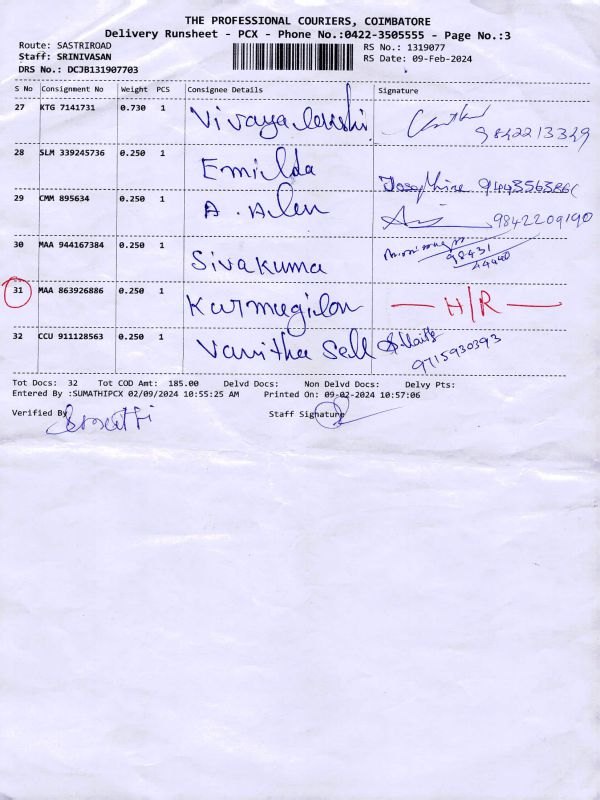 THE PROFESSIONAL COURIERS, COIMBATORE
Delivery Runsheet - PCX - Phone No.:0422-3505555 - Page No.:3
Route: SASTRIROAD
RS No.: 1319077
Staff: SRINIVASAN
RS Date: 09-Feb-2024
DRS No.: DCJB131907703
S No Consignment No Weight PCS Consignee Details Signature
27 KTG 7141731 0.730 1 Vivayalekshi 9842213349
28 SLM 339245736 0.250 1 Emilda Josephine
29 CMM 895634 0.250 1 A. Alen 9842209190
30 MAA 944167384 0.250 1 Sivakuma 98431
31 MAA 863926886 0.250 1 Karmugilan H/R
32 CCU 911128563 0.250 1 Vanitha Sell 9715930393
Tot Docs: 32 Tot COD Amt: 185.00 Delvd Docs: Non Delvd Docs: Delvy Pts:
Entered By :SUMATHIPCX 02/09/2024 10:55:25 AM Printed On: 09-02-2024 10:57:06
Verified By Staff Signature